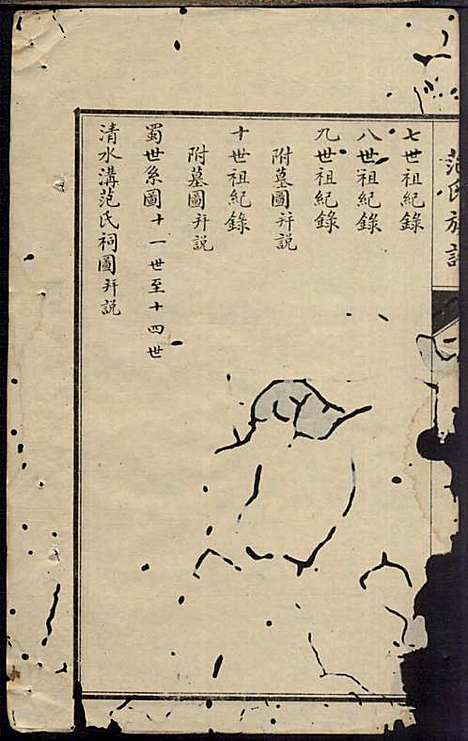 范氏族譜
七世祖紀錄
八世祖紀錄
九世祖紀錄
附墓圖并説
十世祖紀錄
附墓圖并説
蜀世系圖十一世至十四世
清水溝范氏祠圖并説